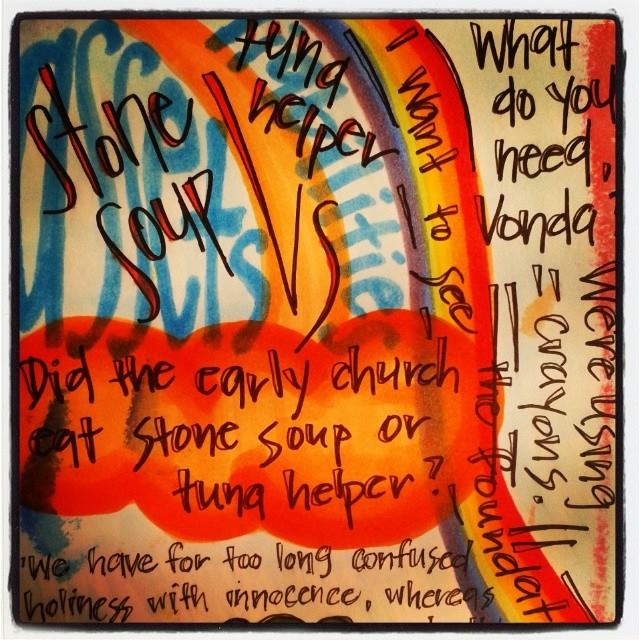 stone
soup
Vs
tuna
helper
I want to see
the foundat
What
do you
need,
Vonda
We're using
"crayons."
Did the early church
eat stone soup or
tuna helper?
"We have for too long confused
holiness with innocence, whereas